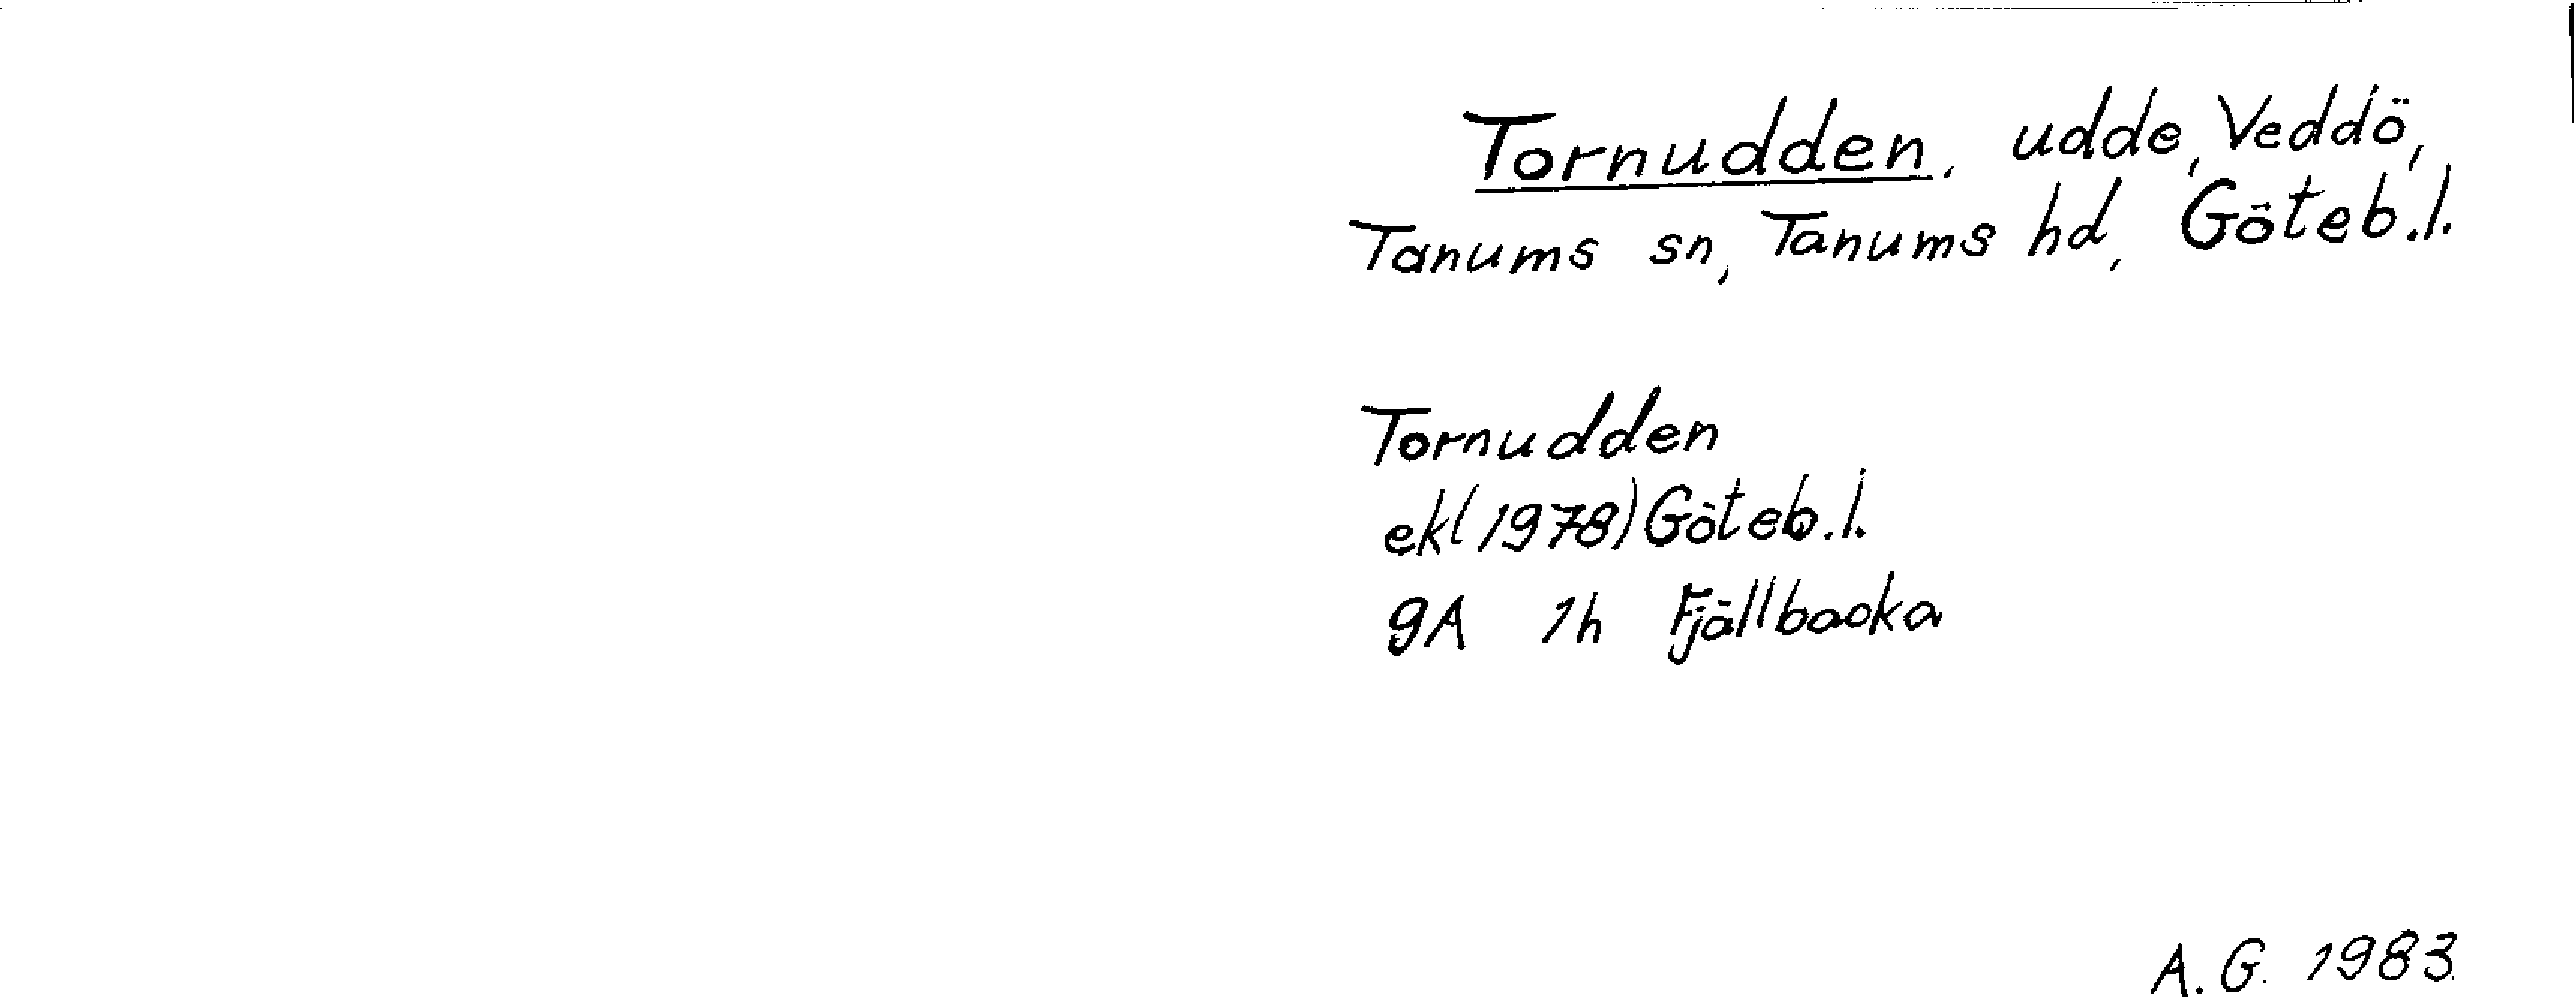 Tornudden, udde, Veddö,
Tanums sn, Tanums hd, Göteb.l.
Tornudden
ek(1978) Göteb.l.
9A 1h Fjällbacka
A.G. 1983